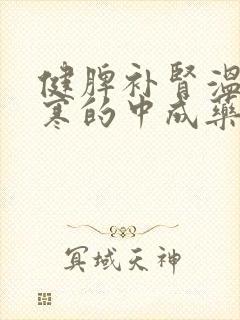 健脾补肾温
寒的中成药
冥域天神